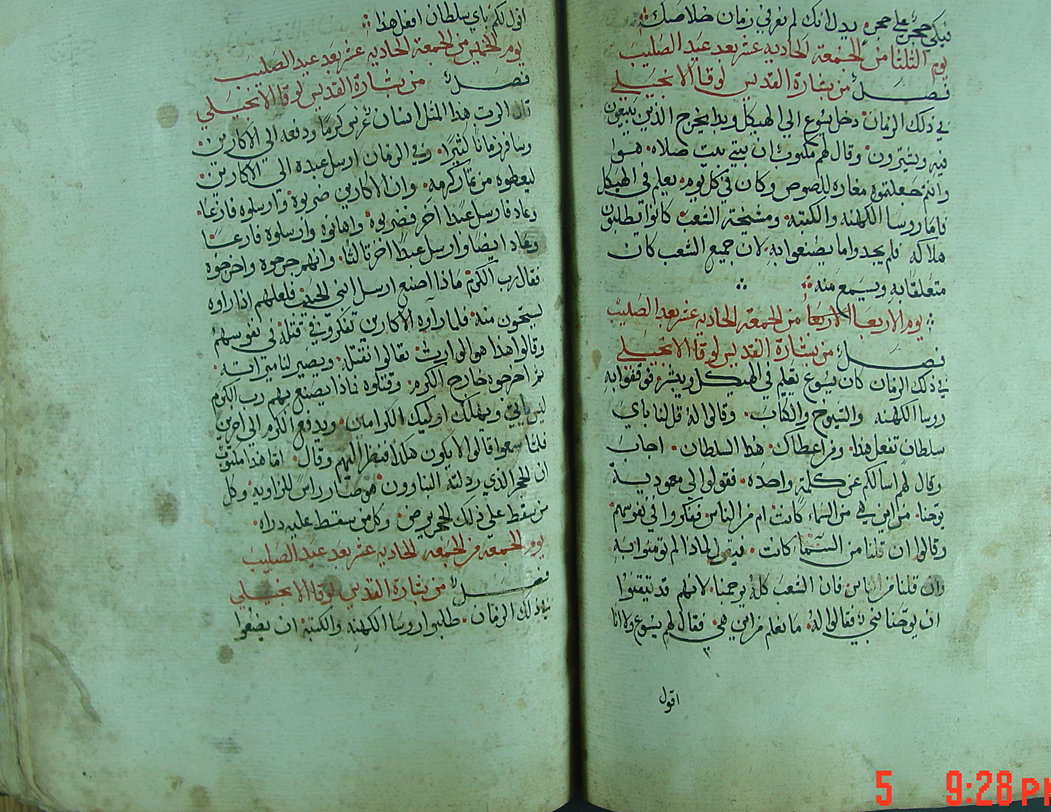 فيكي حجرًا على حجر بدل انك لم تعرفي زمان خلاصك
يوم الثلثا من الجمعة الحادية عشر بعد عيد الصليب
فصل من بشارة القديس لوقا الانجيلي
في ذلك الزمان دخل يسوع الي الهيكل وبدا يخرج الذين يبيعون
فيه ويشترون وقال لهم مكتوب ان بيتي بيت صلاه هو
وانتم جعلتموه مغاره للصوص وكان في كل يوم يعلم في الهيكل
فاما روسا الكهنه والكتبه ومشيخة الشعب كانوا يطلبون
هلاكه فلم يجدوا ما يصنعوا به لان جميع الشعب كان
متعلقا به ويسمع منه
يوم الاربعا من الجمعة الحادية عشر بعد الصليب
فصل من بشارة القديس لوقا الانجيلي
في ذلك الزمان كان يسوع يعلم في الهيكل ويبشر فوقفوا به
روسا الكهنه والشيوخ والكتاب وقالوا له قل لنا باي
سلطان تفعل هذا ومن اعطاك هذا السلطان اجاب
وقال لهم اسالكم عن كلمة واحده فقولوا لي معمودية
يوحنا من اين هي من السماء كانت ام من الناس ففكروا في نفوسهم
وقالوا ان قلنا من السماء كانت فيقول لماذا لم تومنوا به
وان قلنا من الناس فان الشعب كله يرجمنا لانهم قد تيقنوا
ان يوحنا نبي فقالوا له ما نعلم من اين هي فقال لهم يسوع ولا انا
اقول
اقول لكم باي سلطان افعل هذا
يوم الخميس من الجمعة الحادية عشر بعد عيد الصليب
فصل من بشارة القديس لوقا الانجيلي
قال الرب هذا المثل انسان غرس كرما ودفعه الى الاكارين
وسافر زمانا كثيرا وفي الزمان ارسل عبده الى الاكارين
ليعطوه من ثمار كرمه وان الاكارين ضربوه وارسلوه فارغا
وعاد فارسل عبدا اخر فضربوه واهانوه وارسلوه فارغا
وعاد ايضا وارسل عبدا اخر ثالثا وانهم جرحوه واخرجوه
فقال رب الكرم ماذا اصنع ارسل ابني الحبيب فلعلهم اذا راوه
يستحون منه فلما راوه الاكارين تفكروا في قتله في نفوسهم
وقالوا هذا هو الوارث تعالوا نقتله ويصير لنا ميراثه
ثم اخرجوه خارج الكرم وقتلوه فاذا يصنع بهم رب الكرم
ليس ياتي ويهلك اوليك الكرامين ويدفع الكرم الى اخرين
فلما سمعوا قالوا لا يكون هكذا فنظر اليهم وقال اما هذا مكتوب
ان الحجر الذي رذلته البناوون هو صار راس للزاويه وكل
من سقط على ذلك الحجر يرض وكل من سقط عليه دراه
يوم الجمعه من الجمعه الحادية عشر بعد عيد الصليب
فصل من بشارة القديس لوقا الانجيلي
في ذلك الزمان طلبوا روسا الكهنه والكتبه ان يضعوا
5 9:28 PM